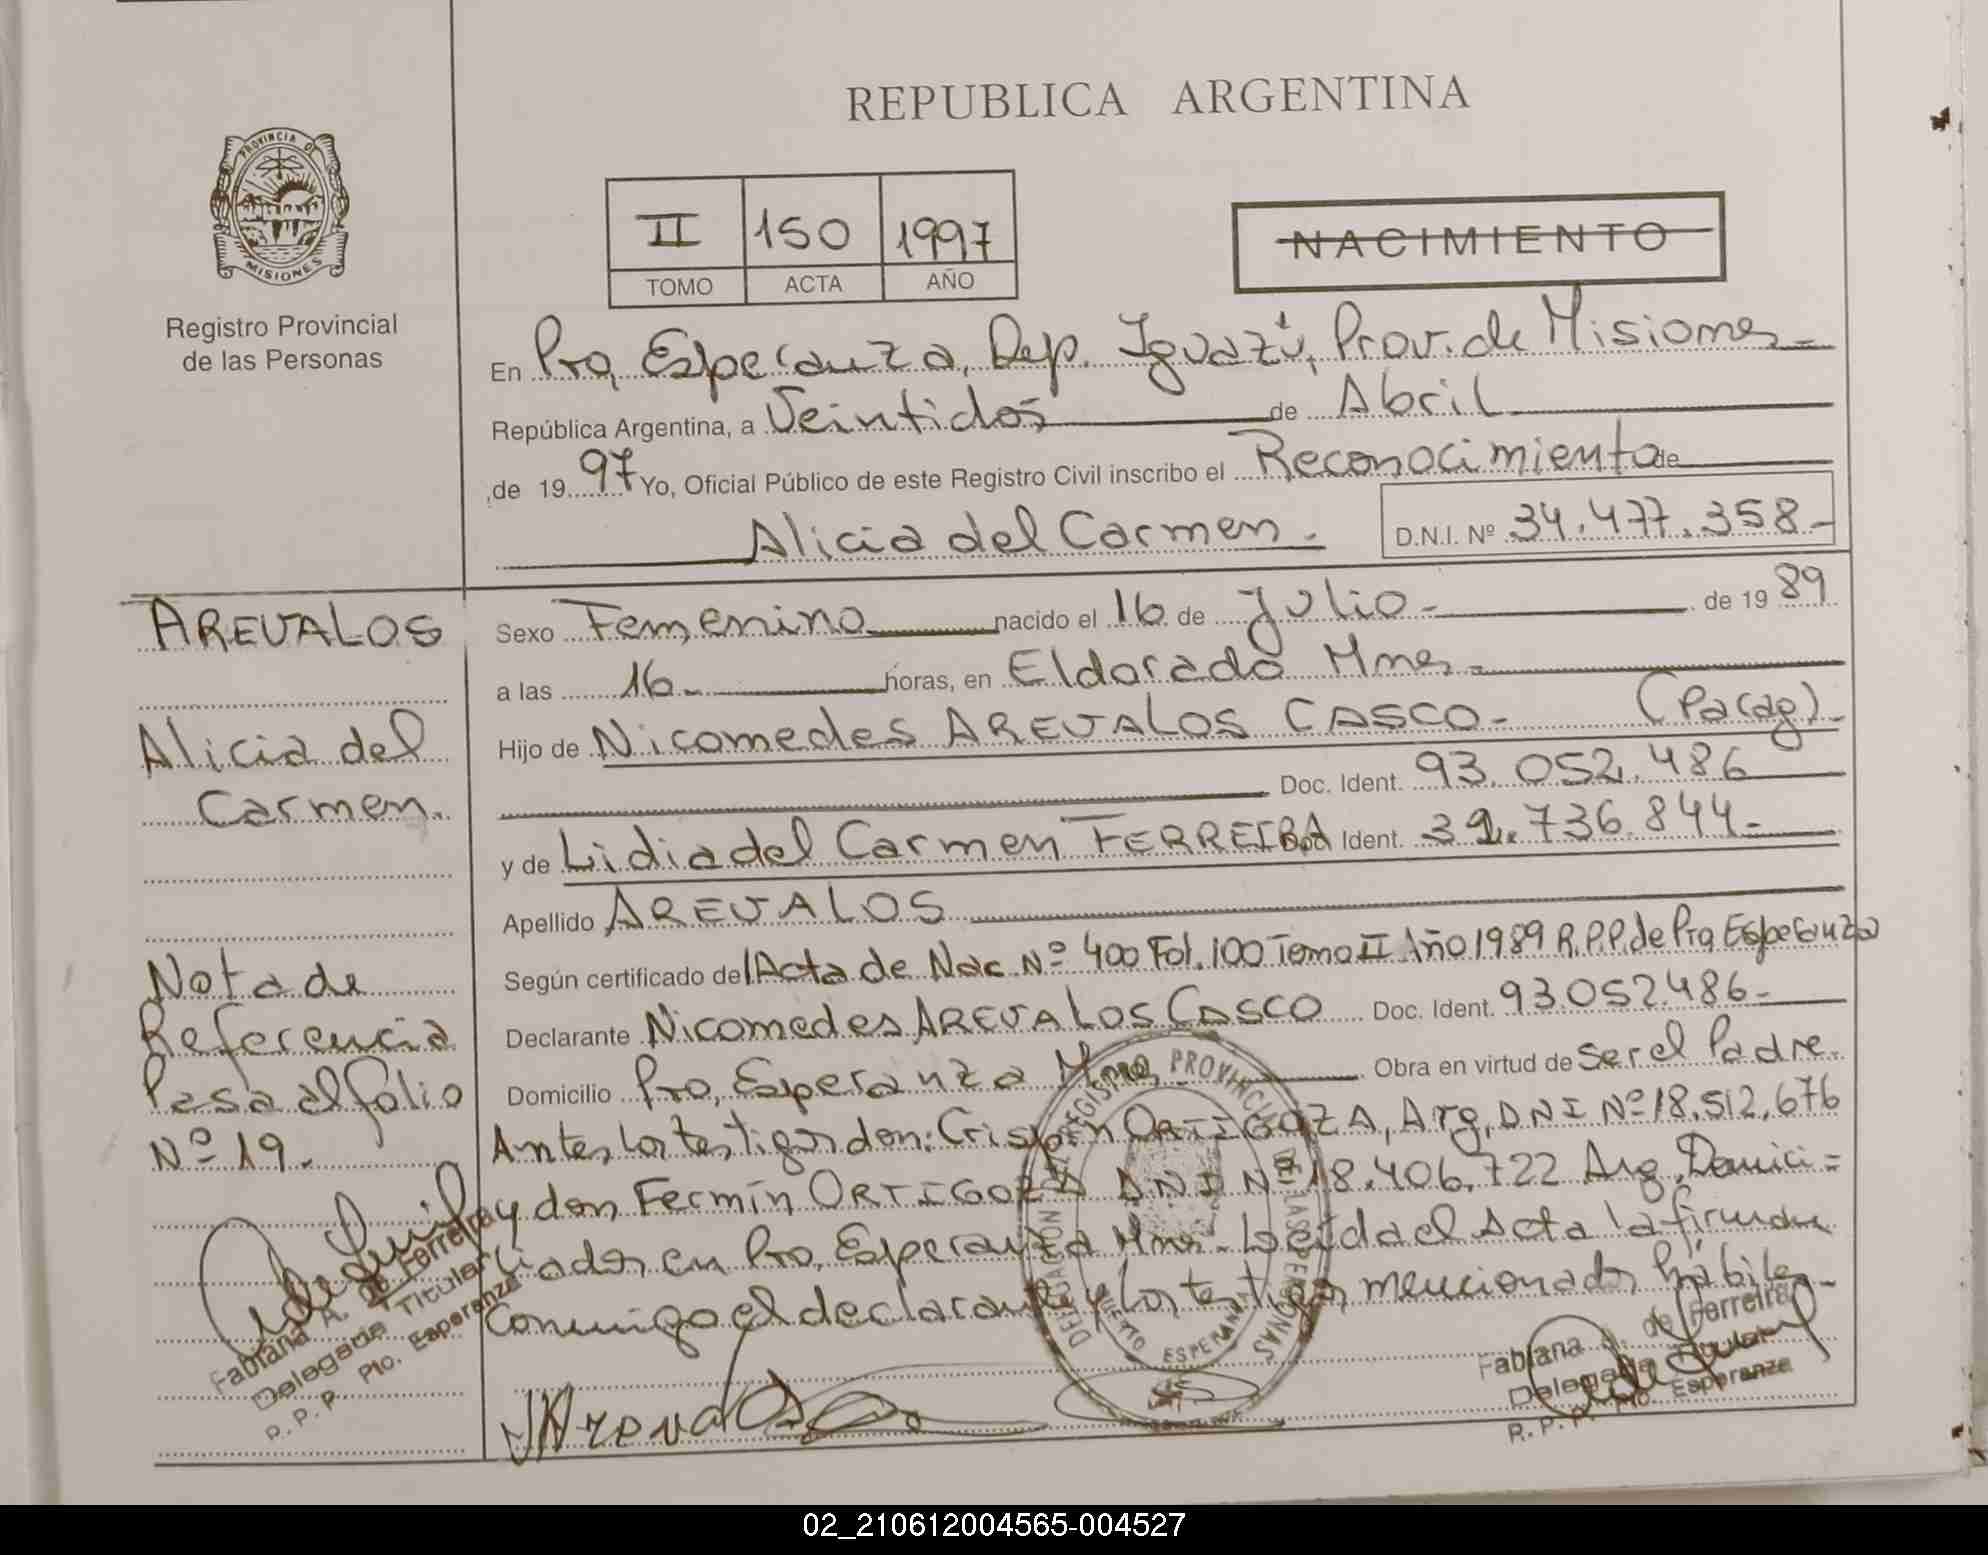 REPUBLICA ARGENTINA
PROVINCIA DE
MISIONES
Registro Provincial
de las Personas
II 150 1997
TOMO ACTA AÑO
NACIMIENTO
En Pto, Esperanza, Dep. Iguazú, Prov. de Misiones-
República Argentina, a Veintidos de Abril
de 1997 Yo, Oficial Público de este Registro Civil inscribo el Reconocimiento de
Alicia del Carmen. D.N.I. Nº 34.477.358-
AREVALOS
Alicia del
Carmen.
Nota de
Referencia
Pasa al folio
Nº 19.
Fabiana A. de Ferreira
Delegada Titular
R. P. P. Pto. Esperanza
Sexo Femenino nacido el 16 de Julio- de 1989
a las 16- horas, en Eldorado Mnes-
Hijo de Nicomedes AREVALOS CASCO- (Parag)-
Doc. Ident. 93.052.486
y de Lidia del Carmen FERREIRA Doc. Ident. 32.736.844-
Apellido AREVALOS
Según certificado del Acta de Nac Nº 400 Fol. 100 Tomo II Año 1989 R.P.P. de Pto Esperanza
Declarante Nicomedes AREVALOS CASCO Doc. Ident. 93.052.486-
Domicilio Pto, Esperanza Mnes, Obra en virtud de Ser el Padre.
Antes los testigos don: Crispin ORTIGOZA, Arg, DNI Nº 18.512.676
y don Fermín ORTIGOZA DNI Nº 18.406.722 Arg, Domici=
liados en Pto, Esperanza Mnes- Leída el Acta la firman
Conmigo el declarante y los testigos mencionados hábiles-
DELEGACION REGISTRO PROVINCIAL DE LAS PERSONAS
PUERTO ESPERANZA
NArevalos
Fabiana A. de Ferreira
Delegada Titular
R. P. P. Pto. Esperanza
02_210612004565-004527